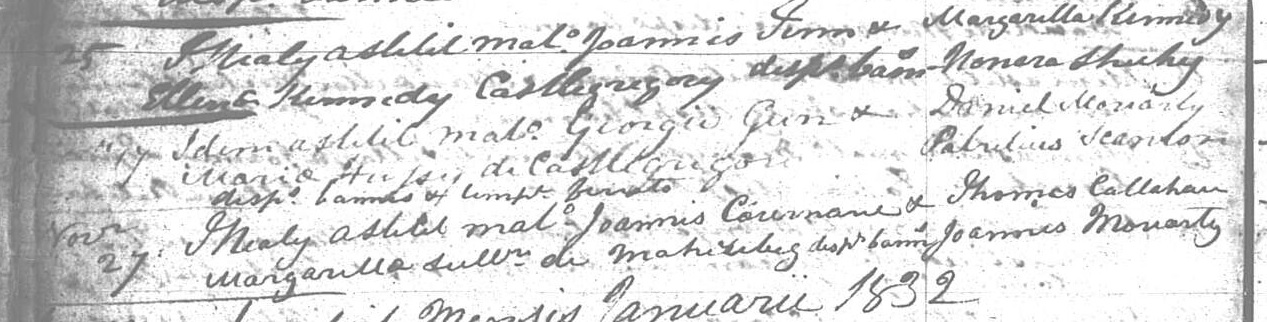 25 J Healy astitit mat.o Joannis Finn & Margarilla Kennedy
Ellena Kennedy Castlegregory disp.s bann Honora Shuhy
Idem astitit mat.o Georgii Gun & Daniel Moriarty
Maria Hussy de Castlegregory Patritius Scanlon
disp.s bannis & temp.e
Nov.r J Healy astitit mat.o Joannis Cournane & Thomas Callahan
27 Margarilla Sullvn de disp.s bannis Joannes Moriarty
Mensis Januarii 1832